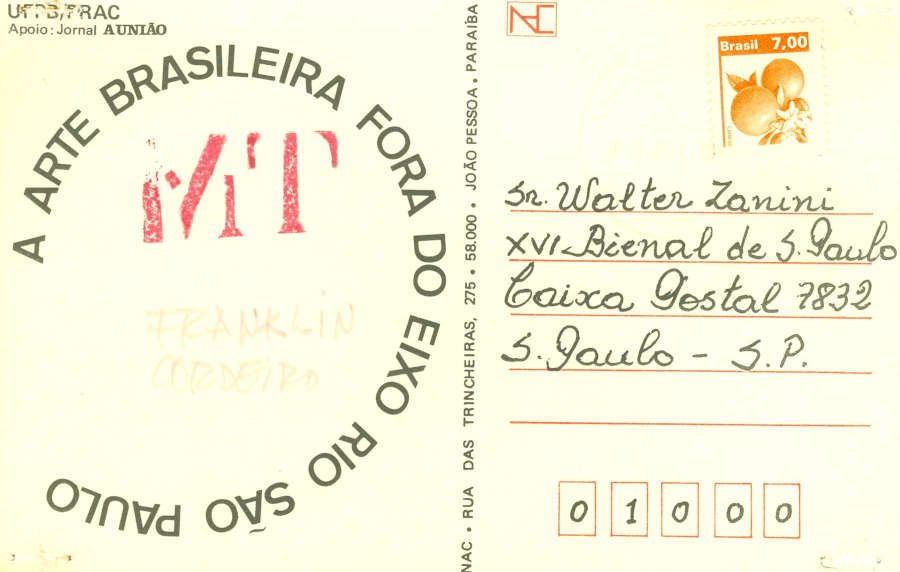 UFPB/PRAC
Apoio: Jornal A UNIÃO
A ARTE BRASILEIRA FORA DO EIXO RIO SÃO PAULO
MT
FRANKLIN
CORDEIRO
NAC • RUA DAS TRINCHEIRAS, 275 • 58.000 • JOÃO PESSOA • PARAÍBA
Brasil 7,00
Sr. Walter Zanini
XVI Bienal de S. Paulo
Caixa Postal 7832
S. Paulo - S.P.
0 1 0 0 0